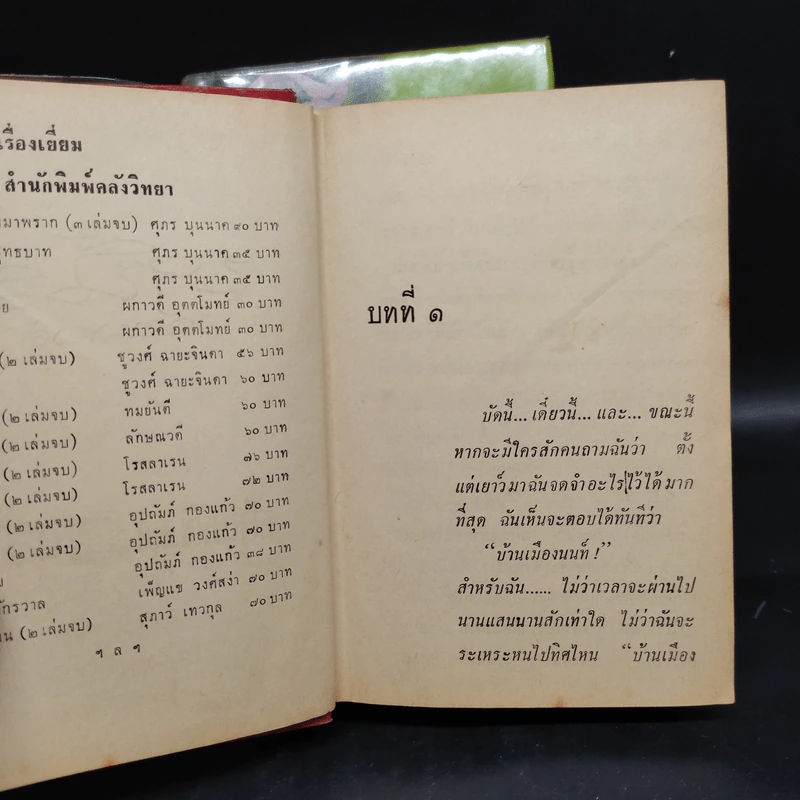 เรื่องเยี่ยม
สำนักพิมพ์คลังวิทยา
มาพราก (๓ เล่มจบ) ศุภร บุนนาค ๙๐ บาท
ุทธบาท ศุภร บุนนาค ๓๕ บาท
ศุภร บุนนาค ๓๕ บาท
ย ผกาวดี อุตตโมทย์ ๓๐ บาท
ผกาวดี อุตตโมทย์ ๓๐ บาท
(๒ เล่มจบ) ชูวงศ์ ฉายะจินดา ๕๖ บาท
ชูวงศ์ ฉายะจินดา ๖๐ บาท
(๒ เล่มจบ) ทมยันตี ๖๐ บาท
(๒ เล่มจบ) ลักษณวดี ๖๐ บาท
(๒ เล่มจบ) โรสลาเรน ๗๖ บาท
(๒ เล่มจบ) โรสลาเรน ๗๒ บาท
(๒ เล่มจบ) อุปถัมภ์ กองแก้ว ๗๐ บาท
(๒ เล่มจบ) อุปถัมภ์ กองแก้ว ๗๐ บาท
อุปถัมภ์ กองแก้ว ๓๘ บาท
จักรวาล เพ็ญแข วงศ์สง่า ๗๐ บาท
น (๒ เล่มจบ) สุภาว์ เทวกุล ๗๐ บาท
ฯ ล ฯ
บทที่ ๑
บัดนี้... เดี๋ยวนี้... และ... ขณะนี้
หากจะมีใครสักคนถามฉันว่า ตั้ง
แต่เยาว์มาฉันจดจำอะไรไว้ได้มาก
ที่สุด ฉันเห็นจะตอบได้ทันทีว่า
“บ้านเมืองนนท์ !”
สำหรับฉัน...... ไม่ว่าเวลาจะผ่านไป
นานแสนนานสักเท่าใด ไม่ว่าฉันจะ
ระเหระหนไปทิศไหน “บ้านเมือง